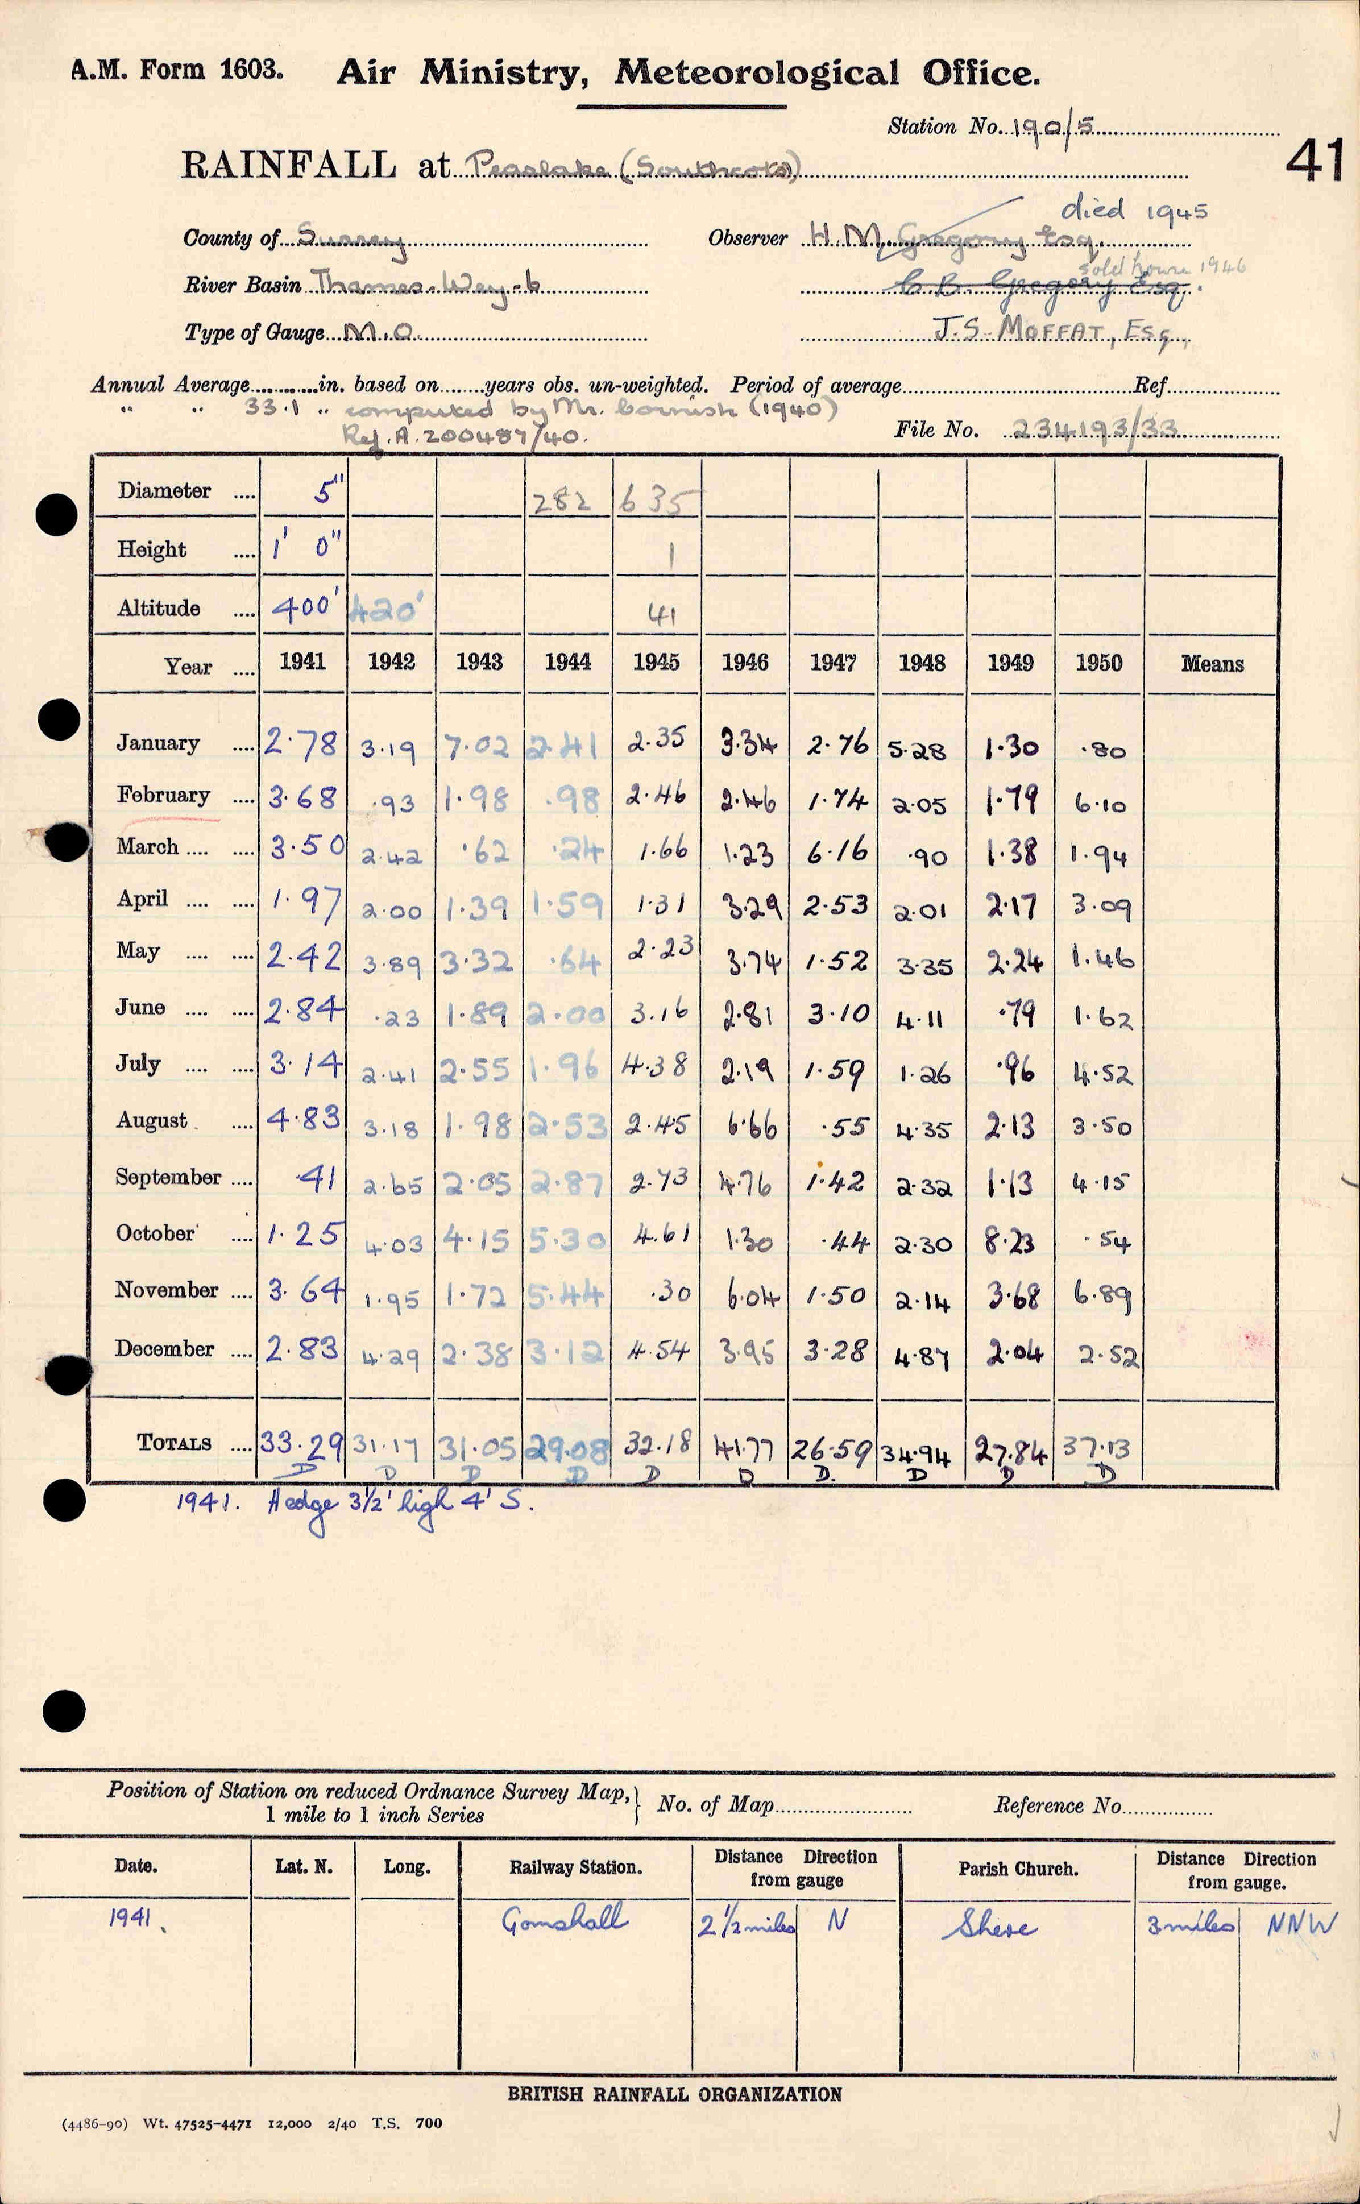 A.M. Form 1603. Air Ministry, Meteorological Office.
Station No. 190/5
41
RAINFALL at Peaslake (Southcote)
died 1945
County of Surrey Observer H.M. Gregory Esq.
sold house 1946
River Basin Thames-Wey-b C.B. Gregory Esq.
Type of Gauge M.O. J.S. MOFFAT, Esq,
Annual Average in. based on years obs. un-weighted. Period of average Ref
" " 33.1 " computed by Mr. Cornish (1940)
Ref. A. 200487/40. File No. 234193/33
Diameter 5" 282 635
Height 1' 0" 1
Altitude 400' 420' 41
Year 1941 1942 1943 1944 1945 1946 1947 1948 1949 1950 Means
January 2.78 3.19 7.02 2.41 2.35 3.34 2.76 5.28 1.30 .80
February 3.68 .93 1.98 .98 2.46 2.46 1.74 2.05 1.79 6.10
March 3.50 2.42 .62 .24 1.66 1.23 6.16 .90 1.38 1.94
April 1.97 2.00 1.39 1.59 1.31 3.29 2.53 2.01 2.17 3.09
May 2.42 3.89 3.32 .64 2.23 3.74 1.52 3.35 2.24 1.46
June 2.84 .23 1.89 2.00 3.16 2.81 3.10 4.11 .79 1.62
July 3.14 2.41 2.55 1.96 4.38 2.19 1.59 1.26 .96 4.52
August 4.83 3.18 1.98 2.53 2.45 6.66 .55 4.35 2.13 3.50
September .41 2.65 2.05 2.87 2.73 4.76 1.42 2.32 1.13 4.15
October 1.25 4.03 4.15 5.30 4.61 1.30 .44 2.30 8.23 .54
November 3.64 1.95 1.72 5.44 .30 6.04 1.50 2.14 3.68 6.89
December 2.83 4.29 2.38 3.12 4.54 3.95 3.28 4.87 2.04 2.52
TOTALS 33.29 31.17 31.05 29.08 32.18 41.77 26.59 34.94 27.84 37.13
D D D D D D D. D D D
1941. Hedge 3½' high 4' S.
Position of Station on reduced Ordnance Survey Map,
1 mile to 1 inch Series } No. of Map Reference No.
Date. Lat. N. Long. Railway Station. Distance Direction from gauge Parish Church. Distance Direction from gauge.
1941. Gomshall 2½ miles N Shere 3 miles NNW
BRITISH RAINFALL ORGANIZATION
(4486-90) Wt. 47525-4471 12,000 2/40 T.S. 700